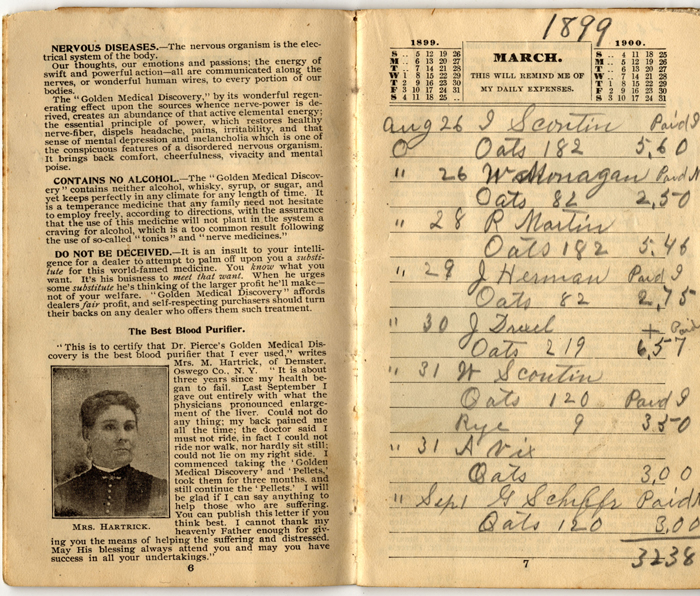 NERVOUS DISEASES.—The nervous organism is the elec-
trical system of the body.
Our thoughts, our emotions and passions; the energy of
swift and powerful action—all are communicated along the
nerves, or wonderful human wires, to every portion of our
bodies.
The "Golden Medical Discovery," by its wonderful regen-
erating effect upon the sources whence nerve-power is de-
rived, creates an abundance of that active elemental energy;
the essential principle of power, which restores healthy
nerve-fiber, dispels headache, pains, irritability, and that
sense of mental depression and melancholia which is one of
the conspicuous features of a disordered nervous organism.
It brings back comfort, cheerfulness, vivacity and mental
poise.
CONTAINS NO ALCOHOL.—The "Golden Medical Discov-
ery" contains neither alcohol, whisky, syrup, or sugar, and
yet keeps perfectly in any climate for any length of time. It
is a temperance medicine that any family need not hesitate
to employ freely, according to directions, with the assurance
that the use of this medicine will not plant in the system a
craving for alcohol, which is a too common result following
the use of so-called "tonics" and "nerve medicines."
DO NOT BE DECEIVED.—It is an insult to your intelli-
gence for a dealer to attempt to palm off upon you a substi-
tute for this world-famed medicine. You know what you
want. It's his buisness to meet that want. When he urges
some substitute he's thinking of the larger profit he'll make—
not of your welfare. "Golden Medical Discovery" affords
dealers fair profit, and self-respecting purchasers should turn
their backs on any dealer who offers them such treatment.
The Best Blood Purifier.
"This is to certify that Dr. Pierce's Golden Medical Dis-
covery is the best blood purifier that I ever used," writes
Mrs. M. Hartrick, of Demster,
Oswego Co., N. Y. "It is about
three years since my health be-
gan to fail. Last September I
gave out entirely with what the
physicians pronounced enlarge-
ment of the liver. Could not do
any thing; my back pained me
all the time; the doctor said I
must not ride, in fact I could not
ride nor walk, nor hardly sit still;
could not lie on my right side. I
commenced taking the 'Golden
Medical Discovery' and 'Pellets,'
took them for three months, and
still continue the 'Pellets.' I will
be glad if I can say anything to
help those who are suffering.
You can publish this letter if you
think best. I cannot thank my
heavenly Father enough for giv-
ing you the means of helping the suffering and distressed.
May His blessing always attend you and may you have
success in all your undertakings."
MRS. HARTRICK.
6
1899
1899. 1900.
MARCH.
THIS WILL REMIND ME OF
MY DAILY EXPENSES.
S .. 5 12 19 26
M .. 6 13 20 27
T .. 7 14 21 28
W 1 8 15 22 29
T 2 9 16 23 30
F 3 10 17 24 31
S 4 11 18 25 ..
S .. 4 11 18 25
M .. 5 12 19 26
T .. 6 13 20 27
W .. 7 14 21 28
T 1 8 15 22 29
F 2 9 16 23 30
S 3 10 17 24 31
Aug 26 J Scontin Paid
O Oats 182 5,60
" 26 W Monagan Paid
Oats 82 2,50
" 28 R Martin
Oats 182 5.46
" 29 J Herman Paid
Oats 82 2,75
" 30 J Drael + Paid
Oats 219 6,57
" 31 W Scontin
Oats 120 Paid
Rye 9 3.50
" 31 A Vix
Oats 3,00
" Sept 1 G Schiffr Paid
Oats 120 3,00
3238
7